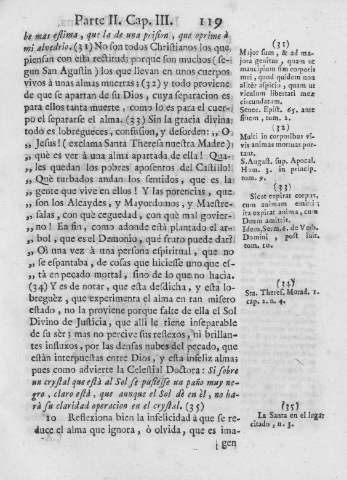 Parte II. Cap. III. 119
be mas estima, que la de una prision, que oprime à
mi alvedrio. (31) No son todos Christianos los que
piensan con esta rectitud; porque son muchos (se-
gun San Agustin) los que llevan en unos cuerpos
vivos à unas almas muertas; (32) y todo proviene
de que se apartan de su Dios, cuya separacion es
para ellos tanta muerte, como lo es para el cuer-
po el separarse el alma. (33) Sin la gracia divina
todo es lobregueces, confusion, y desorden: „ O,
„ Jesus! (exclama Santa Theresa nuestra Madre)
„ què es ver à una alma apartada de ella! Qua-
„ les quedan los pobres aposentos del Castillo!
„ Què turbados andan los sentidos, que es la
„ gente que vive en ellos! Y las potencias, que
„ son los Alcaydes, y Mayordomos, y Maestre-
„ salas, con què ceguedad, con què mal govier-
„ no! En fin, como adonde està plantado el ar-
„ bol, que es el Demonio, què fruto puede dàr?
„ Oì una vez à una persona espiritual, que no
„ se espantaba, de cosas que hiciesse uno que es-
„ tà en pecado mortal, sino de lo que no hacia.
(34) Y es de notar, que esta desdicha, y esta lo-
breguèz, que experimenta el alma en tan misero
estado, no la proviene porque falte de ella el Sol
Divino de Justicia, que alli le tiene inseparable
de su sèr; mas no percive sus reflexos, ni brillan-
tes influxos, por las densas nubes del pecado, que
están interpuestas entre Dios, y esta infeliz alma;
pues como advierte la Celestial Doctora: Si sobre
un crystal que està al Sol se pusiesse un paño muy ne-
gro, claro està, que aunque el Sol dè en èl, no ha-
rà su claridad operacion en el crystal. (35)
10 Reflexiona bien la infelicidad à que se re-
duce el alma que ignora, ò olvida, que es ima-
¡ gen
(31)
Major sum, & ad ma-
jora genitus, quam ut
mancipium sim corporis
mei, quod quidem non
aliter aspicio, quam ut
vinculum libertati meæ
circundatum.
Senec. Epist. 65. ante
finem, tom. 2.
(32)
Multi in corporibus vi-
vis animas mortuas por-
tant.
S. August. sup. Apocal.
Hom. 3. in princip.
tom. 9.
(33)
Sicut expirat corpus,
cum animam emittit;
ita expirat anima, cum
Deum amittit.
Idem, Serm. 6. de Verb.
Domini, post init.
tom. 10.
(34)
Sta. Theres. Morad. 1.
cap. 2. n. 4.
(35)
La Santa en el lugar
citado, n. 3.